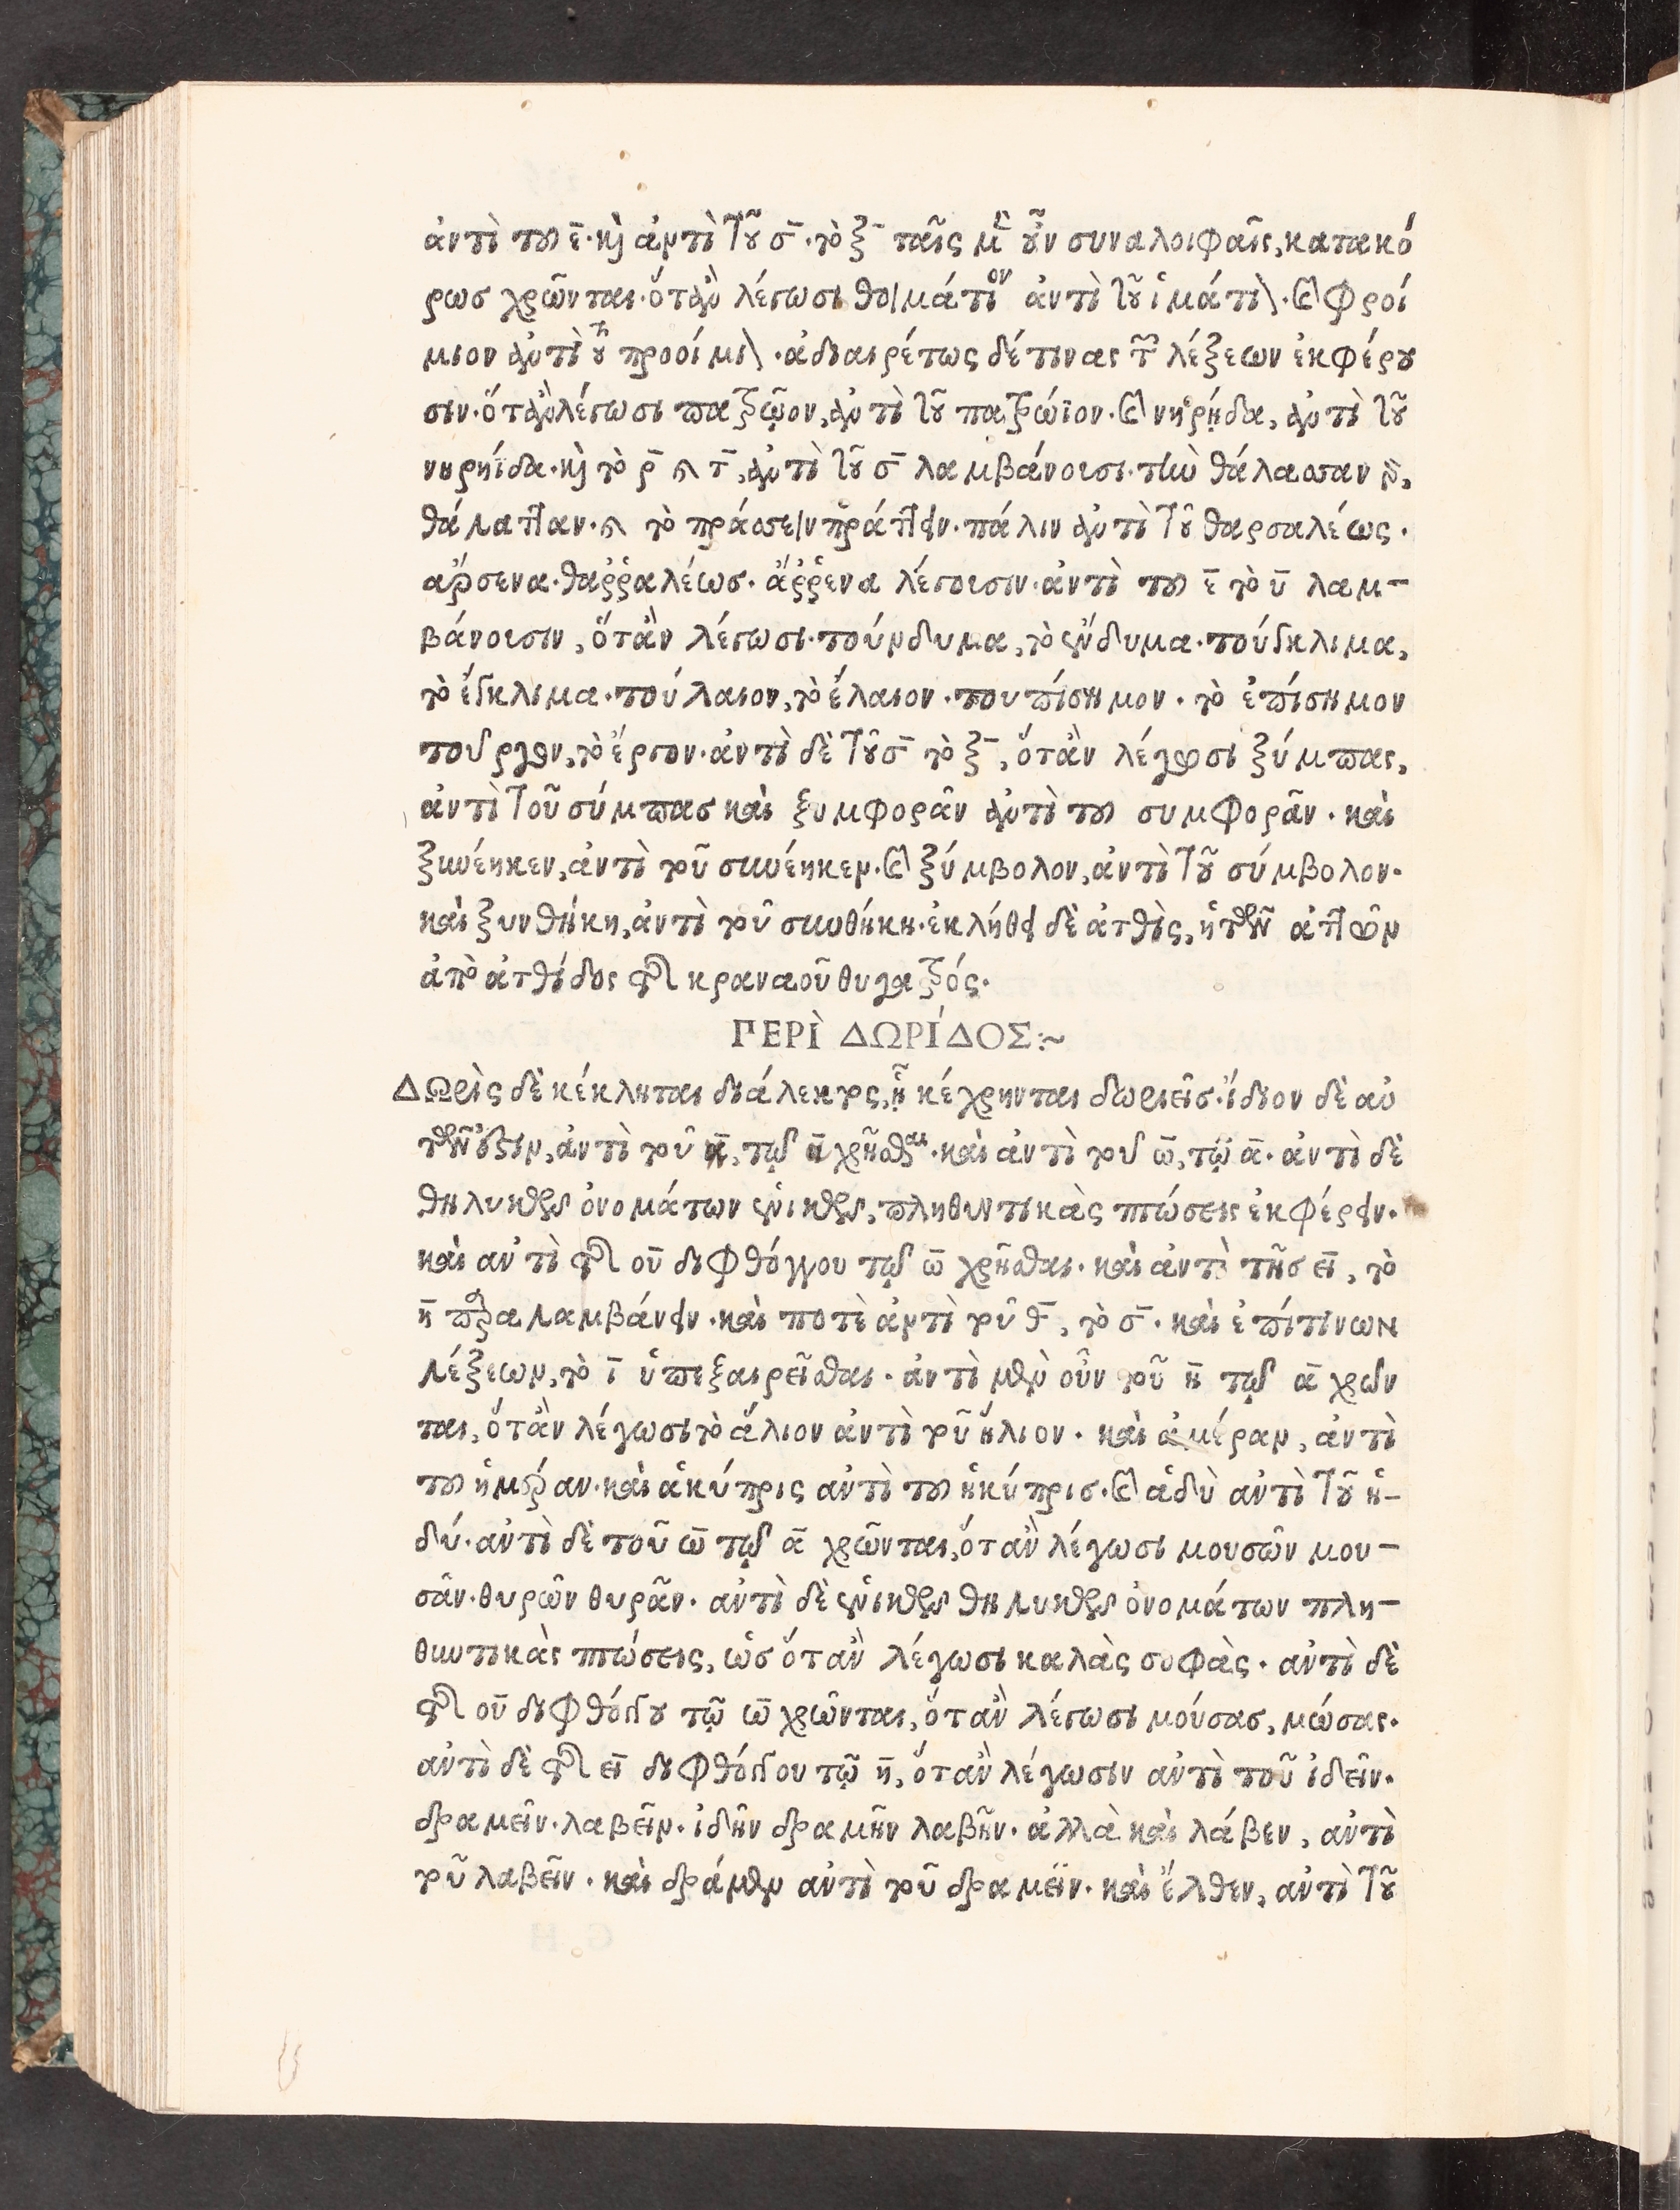 ἀντὶ τοῦ ε̄· καὶ ἀντὶ τοῦ σ̄· τὸ ξ̄ ταῖς μὲν οὖν συναλοιφαῖς, κατακό
ρωσ χρῶνται· ὅταν λέγωσι θοιμάτιον ἀντὶ τοῦ ἱμάτιον· καὶ φροί
μιον ἀντὶ τοῦ προοίμιον· ἀδιαιρέτως δέτινας τῶν λέξεων ἐκφέρου
σιν· ὅτανλέγωσι πατρῶον, ἀντὶ τοῦ πατρώϊον· καὶ νηρῄδα, ἀντὶ τοῦ
νηρηΐδα· καὶ τὸ ρ̄ καὶ τ̄, ἀντὶ τοῦ σ̄ λαμβάνουσι· τὴν θάλασσαν
θάλατταν· καὶ τὸ πράσσειν πράττειν· πάλιν ἀντὶ τοῦ θαρσαλέως·
ἄρσενα· θαῤῥαλέωσ· ἄῤῥενα λέγουσιν· ἀντὶ τοῦ ε̄ τὸ ῡ λαμ-
βάνουσιν, ὅτὰν λέγωσι· τούνδυμα, τὸ ἔνδυμα· τούγκλιμα,
τὸ ἔγκλιμα· τούλαιον, τὸ ἔλαιον· τουπίσημον· τὸ ἐπίσημον
τούργον, τὸ ἔργον· ἀντὶ δὲ τοῦ σ̄ τὸ ξ̄, ὅτὰν λέγωσι ξύμπας,
ἀντὶ τοῦ σύμπασ καὶ ξυμφορᾶν ἀντὶ τοῦ συμφορᾶν· καὶ
ξυνέηκεν, ἀντὶ τοῦ συνέηκεν· καὶ ξύμβολον, ἀντὶ τοῦ σύμβολον·
καὶ ξυνθήκη, ἀντὶ τοῦ συνθήκη· ἐκλήθη δὲ ἀτθὶς, ἡ τῶν ἀττικῶν
ἀπὸ ἀτθίδος τῆς κραναοῦ θυγατρός·
ΠΕΡῚ ΔΩΡΊΔΟΣ:~
ΔΩρὶς δὲ κέκληται διάλεκτος, ᾗ κέχρηνται δωριεῖσ· ἴδιον δὲ αὐ
τῶν ἐστιν, ἀντὶ τοῦ η̄, τῷ ᾱ χρῆσθαι· καὶ ἀντὶ τοῦ ω̄, τῷ ᾱ· ἀντὶ δὲ
θηλυκῶν ὀνομάτων ἑνικῶν, πληθυντικὰς πτώσεις ἐκφέρειν·
καὶ ἀντὶ τῆς οῡ διφθόγγου τῷ ω̄ χρῆσθαι· καὶ ἀντὶ τῆσ εῑ, τὸ
η̄ παραλαμβάνειν· καὶ ποτὲ ἀντὶ τοῦ θ̄, τὸ σ̄· καὶ ἐπίτινων
λέξεων, τὸ ῑ ὑπεξαιρεῖσθαι· ἀντὶ μὲν οὖν τοῦ η̄ τῷ ᾱ χρῶν
ται, ὅτὰν λέγωσι τὸ ἅλιον ἀντὶ τοῦ ἥλιον· καὶ ἁμέραν, ἀντὶ
τοῦ ἡμέραν· καὶ ἁκύπρις ἀντὶ τοῦ ἡκύπρισ· καὶ ἁδὺ ἀντὶ τοῦ ἡ-
δύ· ἀντὶ δὲ τοῦ ω̄ τῷ ᾱ χρῶνται, ὅταν λέγωσι μουσῶν μου-
σᾶν· θυρῶν θυρᾶν· ἀντὶ δὲ ἑνικῶν θηλυκῶν ὀνομάτων πλη-
θυντικὰς πτώσεις, ὡσ ὅταν λέγωσι καλὰς σοφὰς· ἀντὶ δὲ
τῆς οῡ διφθόγγου τῷ ω̄ χρῶνται, ὅταν λέγωσι μούσασ, μώσας·
ἀντὶ δὲ τῆς εῑ διφθόγγου τῷ η̄, ὅταν λέγωσιν ἀντὶ τοῦ ἰδεῖν·
δραμεῖν· λαβεῖν· ἰδῆν δραμῆν λαβῆν· ἀλλὰ καὶ λάβεν, ἀντὶ
τοῦ λαβεῖν· καὶ δράμεν ἀντὶ τοῦ δραμεῖν· καὶ ἔλθεν, ἀντὶ τοῦ